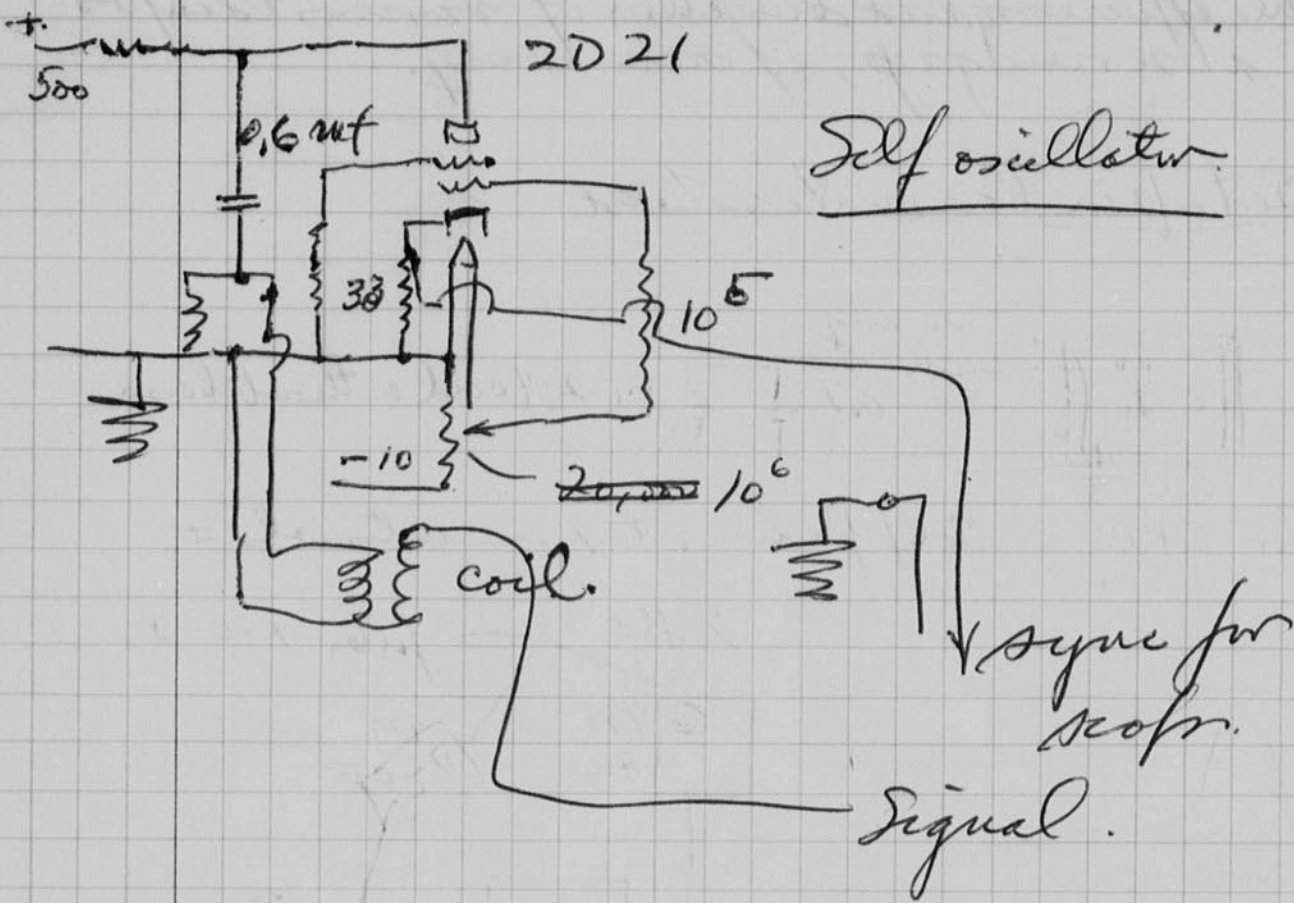 +
2D21
500
0.6 mf
Self oscillator
10^5
-10
20,000 10^6
coil.
sync for
scope.
Signal.